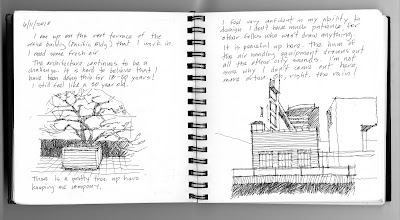 6/11/2018
I am up on the roof terrace of the
office building (Pacific Bldg) that I work in
I need some fresh air.
The architecture continues to be a
challenge. It is hard to believe that I
have been doing this for 18-20 years!
I still feel like a 30 year old.
There is a pretty tree up here
keeping me company.
I feel very confident in my ability to
design. I don't have much patience for
other fellow who want draw anything.
It is peaceful up here. The hum of
the air handling equipment drowns out
all the other city sounds. I'm not
sure why I don't come out here
more often. Oh, right, the rain!